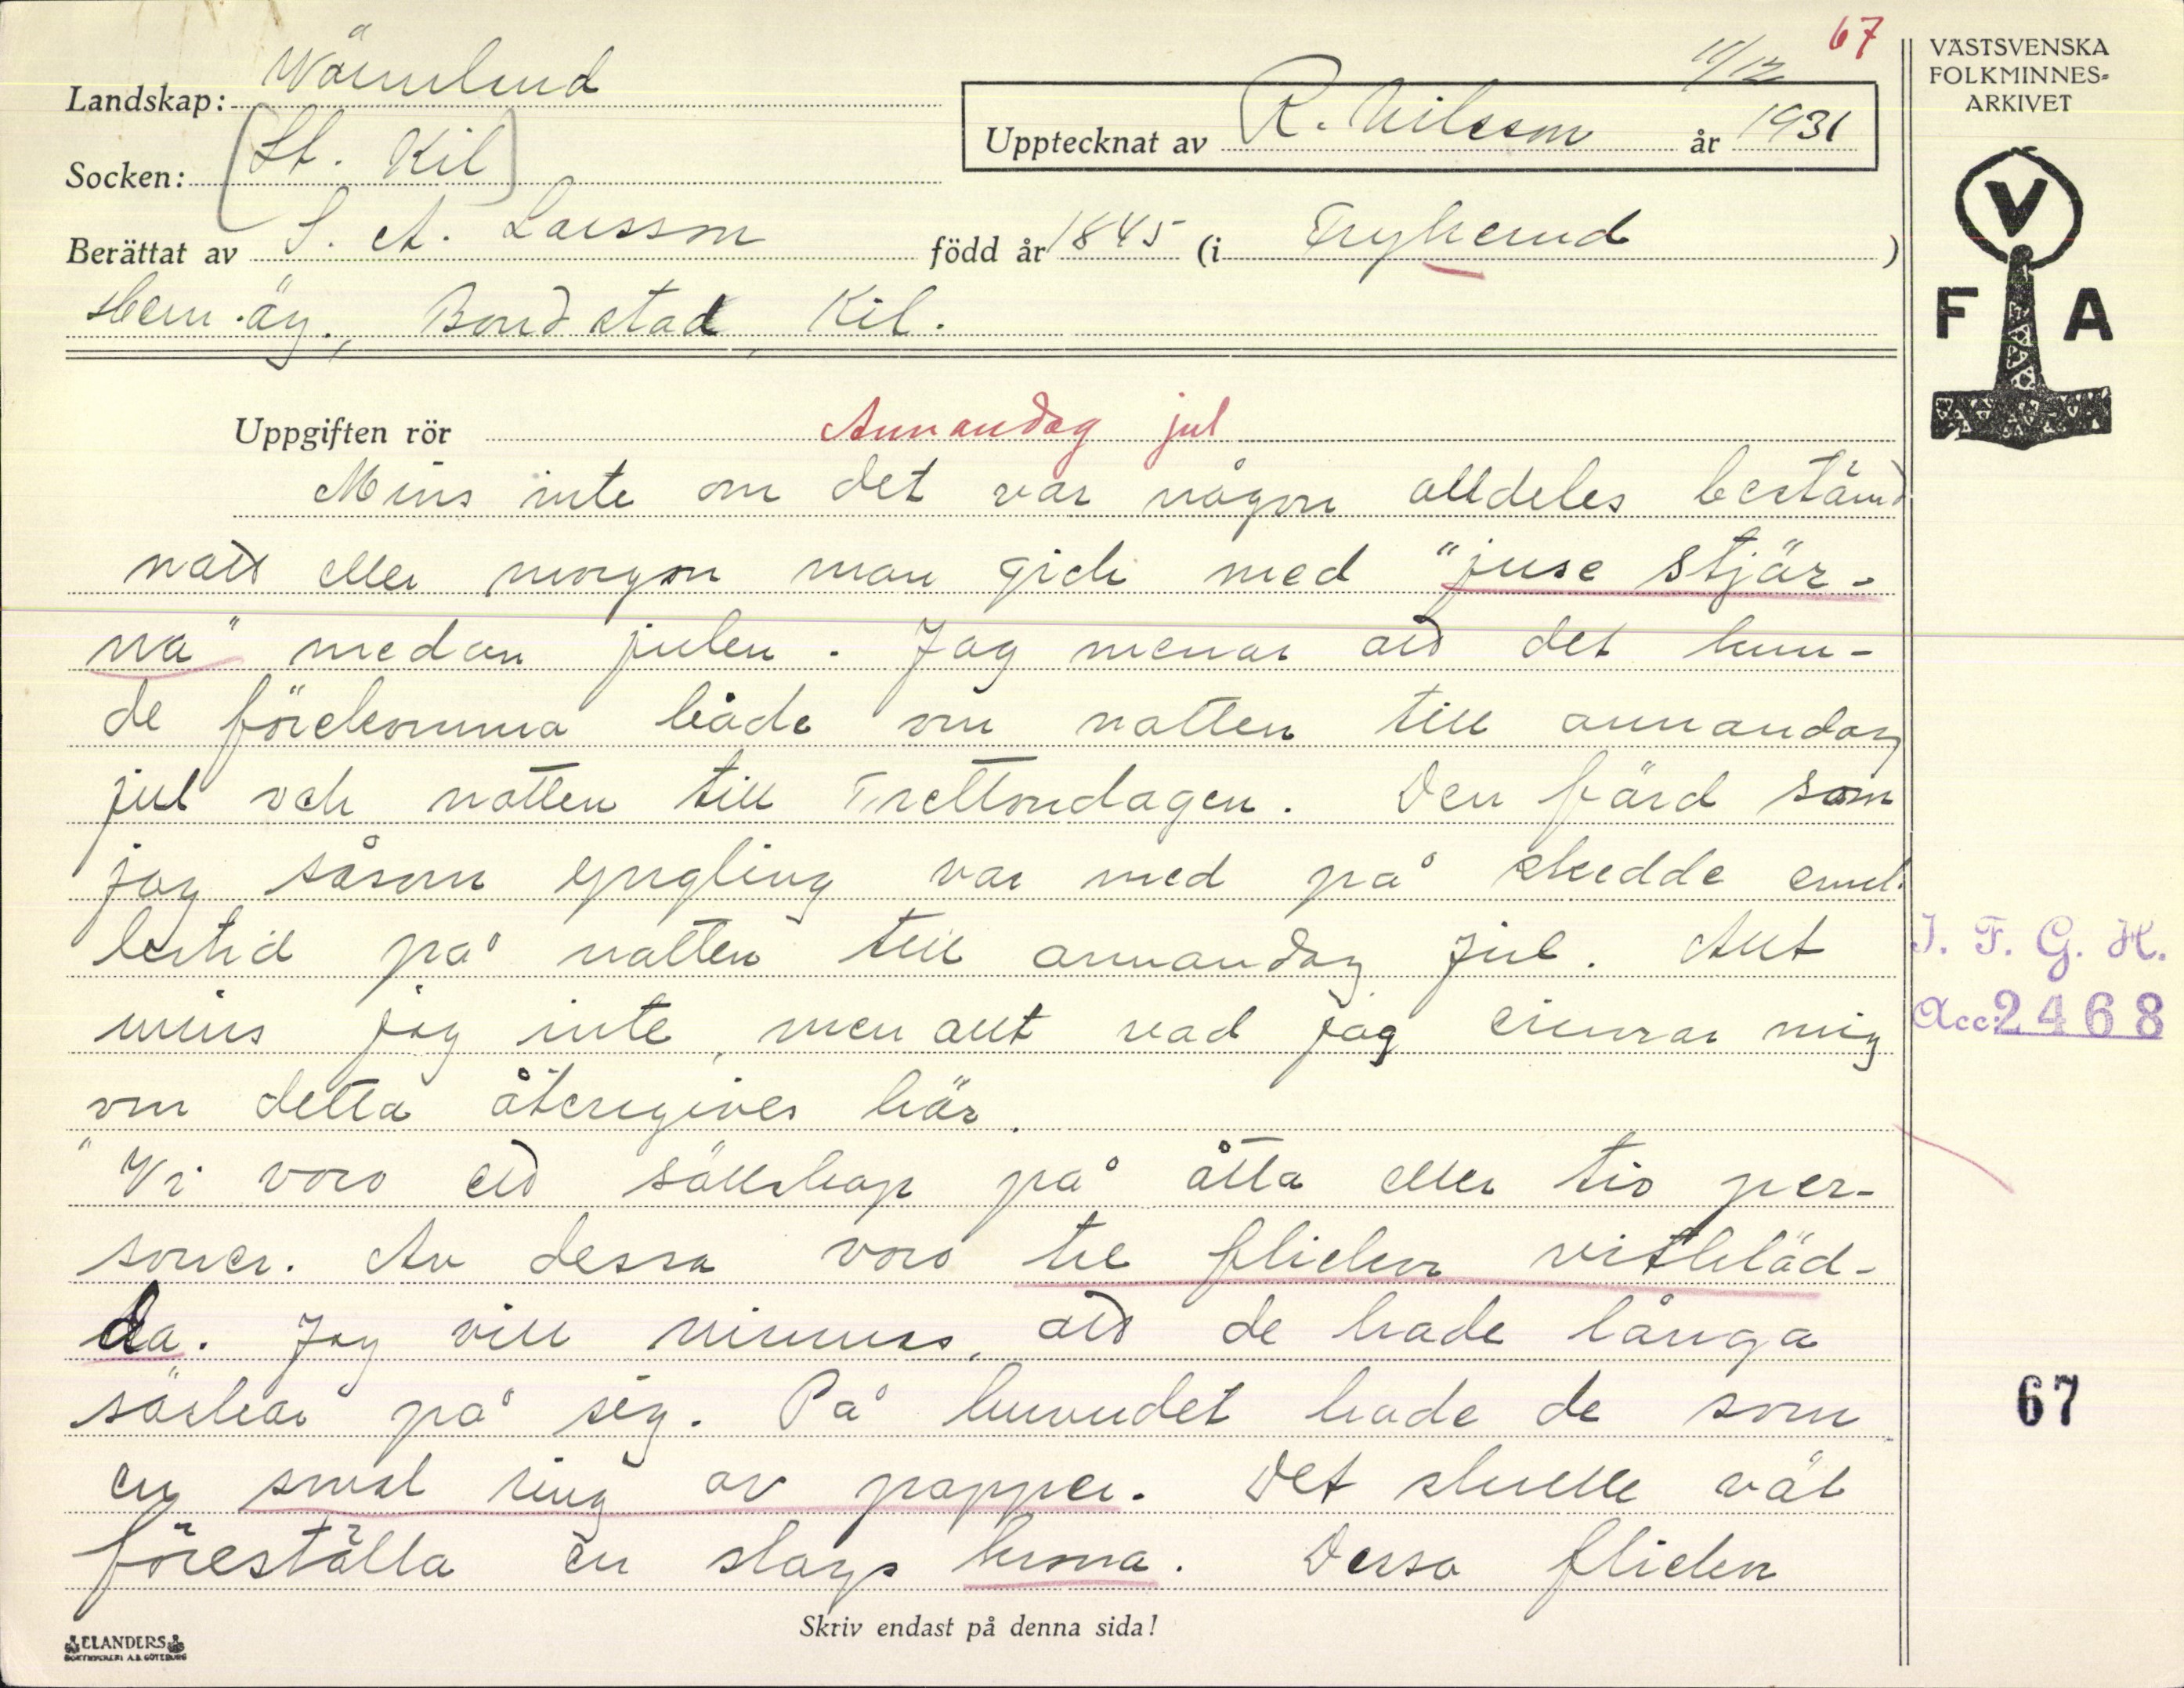 67
11/12
Landskap: Wärmland
Socken: (St. Kil)
Upptecknat av R. Nilsson år 1931
Berättat av S. A. Larsson född år 1845 (i Frykerud)
Hem.äg., Bondstad, Kil.
VÄSTSVENSKA
FOLKMINNES-
ARKIVET
V
F A
Uppgiften rör Annandag jul
Mins inte om det var någon alldeles bestämd
natt eller morgon man gick med "juse stjär-
na" medan julen. Jag menar att det kun-
de förekomma både om natten till annandag
jul och natten till Trettondagen. Den färd som
jag såsom yngling var med på skedde emel-
lertid på natten till annandag jul. Allt
mins jag inte, men allt vad jag erinrar mig
om detta återgives här.
"Vi voro ett sällskap på åtta eller tio per-
soner. Av dessa voro tre flickor vitkläd-
da. Jag vill minnas, att de hade långa
särkar på sig. På huvudet hade de som
en smal ring av papper. Det skulle väl
föreställa en slags krona. Dessa flickor
I. F. G. H.
Acc: 2468
67
Skriv endast på denna sida!
ELANDERS
BOKTRYCKERI A.B. GÖTEBORG